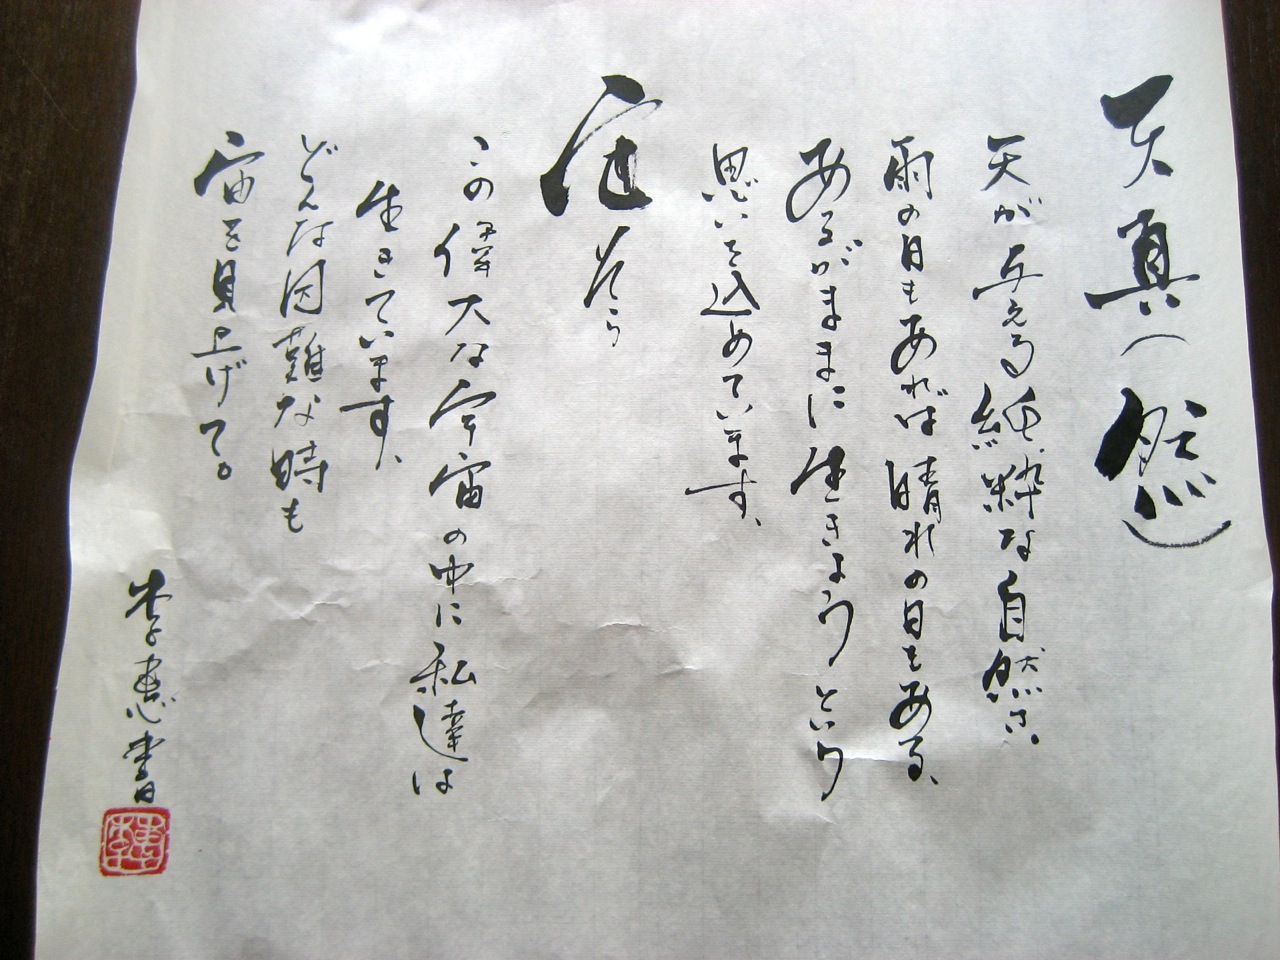 天真(然)
天が与える純粋な自然さ、
雨の日もあれば晴れの日もある、
あるがままに生きようという
思いを込めています、
宙 そら
この偉大な宇宙の中に私達は
生きています、
どんな困難な時も
宙を見上げて。
李恵書